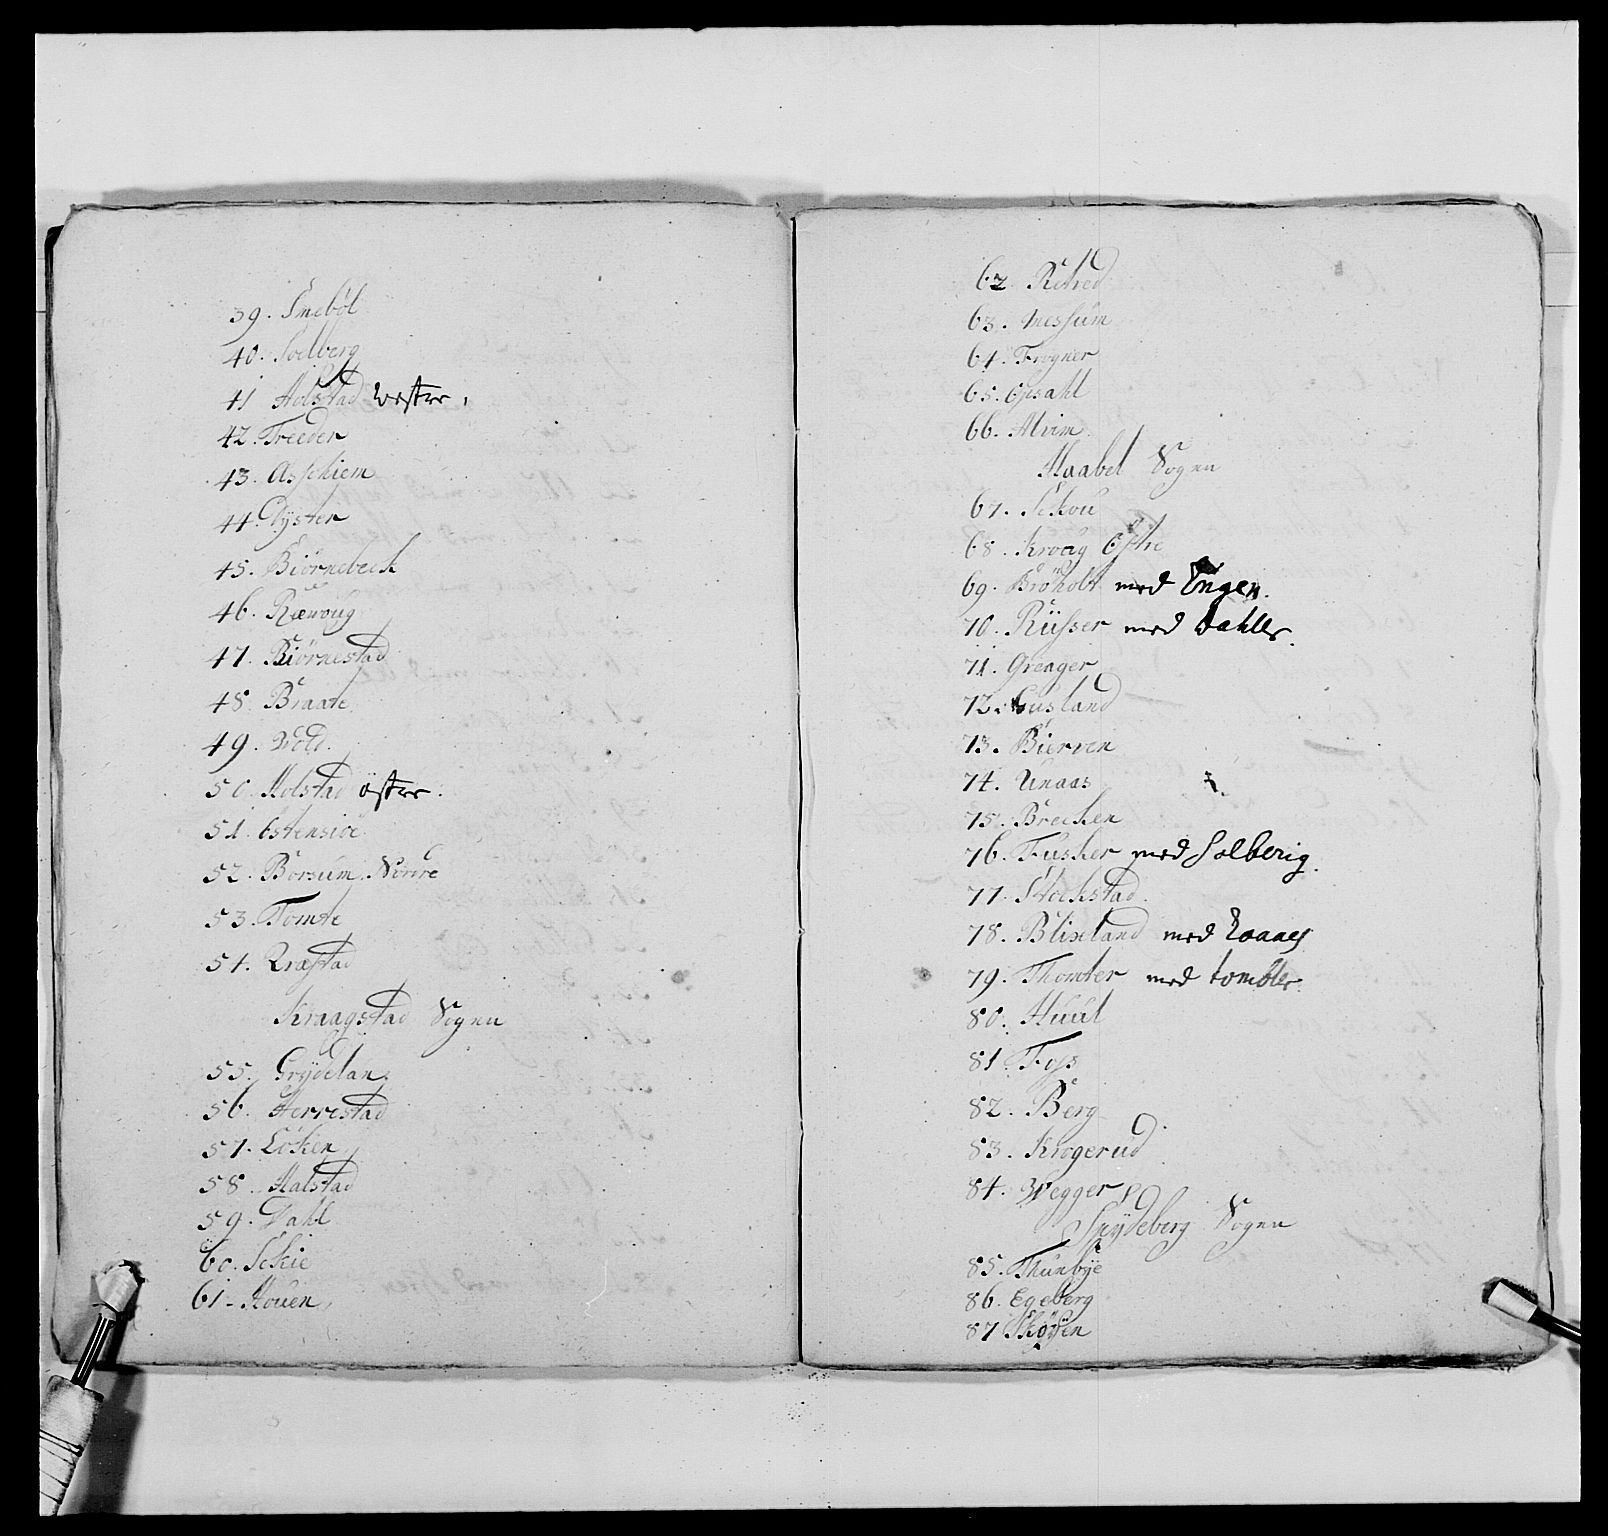 39. Smebøl
40. Soelberg
41 Holstad wester,
42. Treeder
43. Asschiem
44. Dyster
45. Biørnebeck
46. Rævoug
47. Biørnestad
48. Braate
49. Wold.
50. Holstad öster.
51. Østensiøe
52. Borsum Nørre
53. Tomte
54. Qvæstad
Kraagstad Sogen
55. Grydeland
56. Herrestad
57. Løken
58. Halstad
59. Dahl
60. Schie
61 - Houen,
62. Retved
63. Messum
64. Frogner
65. Opsahl
66. Alvim
Haabel Sogen
67. Schou
68. Kroeg Østre
69. Brøholt med Engen.
70. Russer med Dahler.
71. Greager
72. Huusland
73. Bierven
74. Unaas
75. Brecken
76. Fusker med Solberig.
77. Stockstad.
78. Blixland med Loanes
79. Thomter med tombler.
80. Huul
81 Foss
82. Berg
83. Krogerud
84. Wegger
Spydeberg Sogen
85. Thunbye
86. Egeberg
87 Skøyen